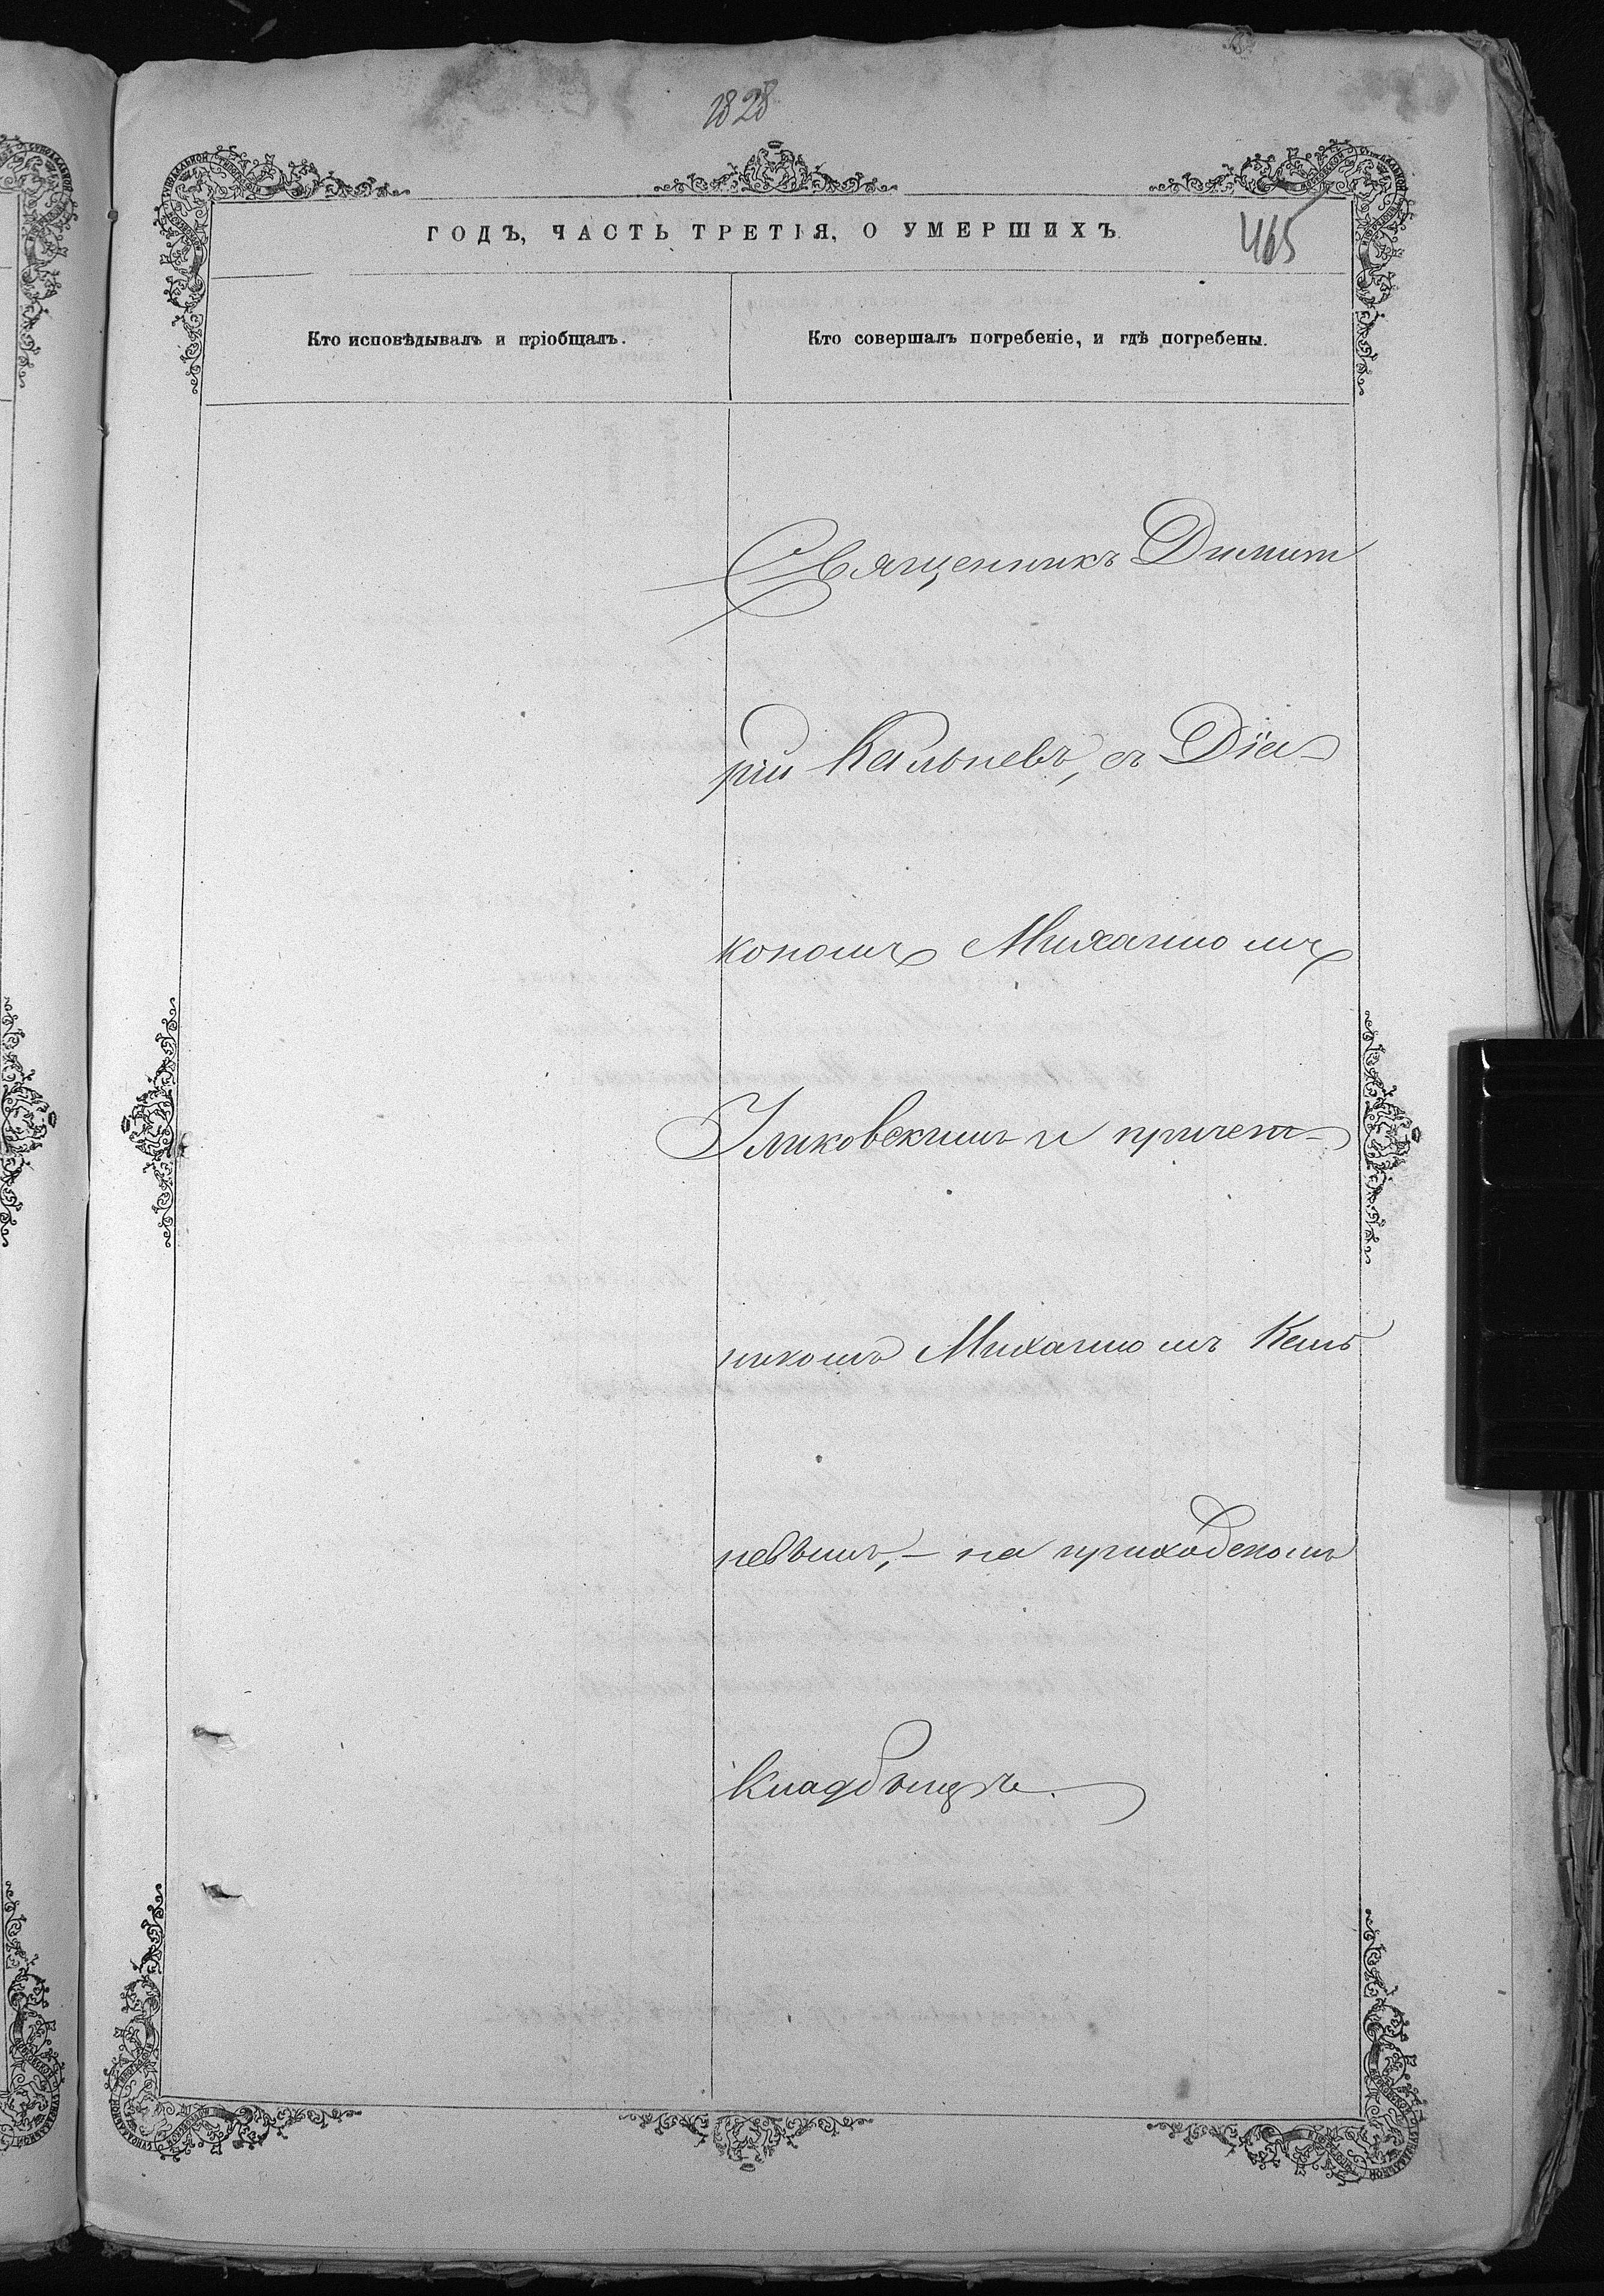 1828
ГОДЪ, ЧАСТЬ ТРЕТІЯ, О УМЕРШИХЪ.
465
Кто исповѣдывалъ и пріобщалъ.
Кто совершалъ погребеніе, и гдѣ погребены.
Священникъ Димит
рій Кальневъ, съ Діа-
кономъ Михаиломъ
и причет-
никомъ Михаиломъ Каль
невымъ, – на приходскомъ
кладбищѣ.